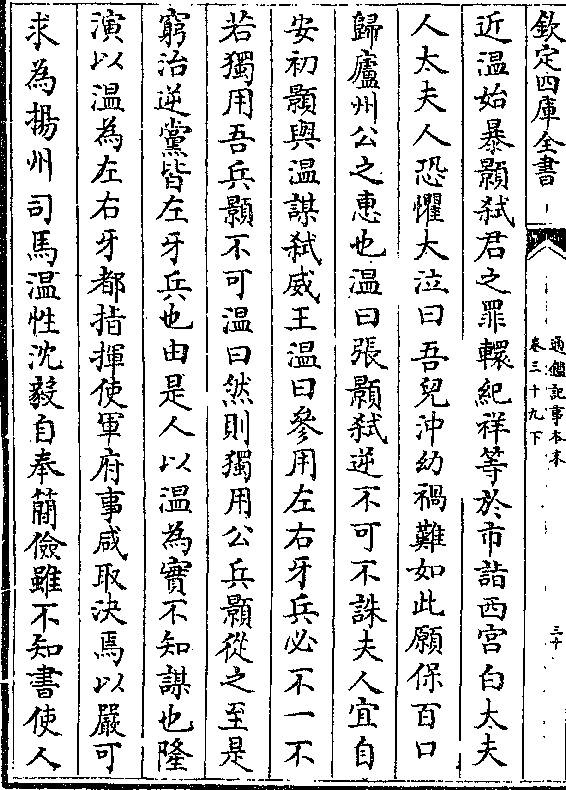 欽定四庫全書
通鑑記事本末
卷三十九下
三十
近温始暴顥弑君之罪轘紀祥等於市詣西宮白太夫
人太夫人恐懼大泣曰吾兒沖幼禍難如此願保百口
歸廬州公之恵也温曰張顥弑逆不可不誅夫人宜自
安初顥與温謀弑威王温曰參用左右牙兵必不一不
若獨用吾兵顥不可温曰然則獨用公兵顥從之至是
窮治逆黨皆左牙兵也由是人以温為實不知謀也隆
演以温為左右牙都指揮使軍府事咸取決焉以嚴可
求為揚州司馬温性沈毅自奉簡儉雖不知書使人